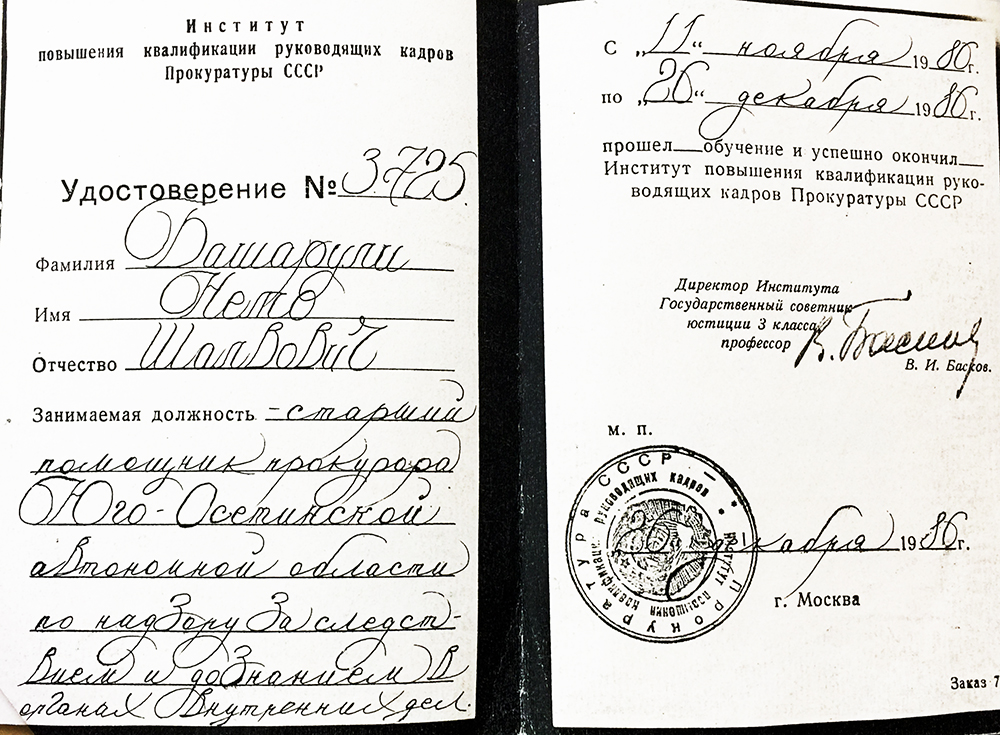 Институт
повышения квалификации руководящих кадров
Прокуратуры СССР
Удостоверение № 3725.
Фамилия Башарули
Имя Немо
Отчество Шалвович
Занимаемая должность - старший
помощник прокурора
Юго-Осетинской
автономной области
по надзору за следст-
вием и дознанием в
органах внутренних дел.
С „11“ ноября 1986г.
по „26“ декабря 1986г.
прошел обучение и успешно окончил
Институт повышения квалификации руко-
водящих кадров Прокуратуры СССР
Директор Института
Государственный советник
юстиции 3 класса,
профессор
В. И. Басков.
м. п.
Прокуратура СССР
Институт повышения квалификации руководящих кадров
декабря 1986г.
г. Москва
Заказ 7